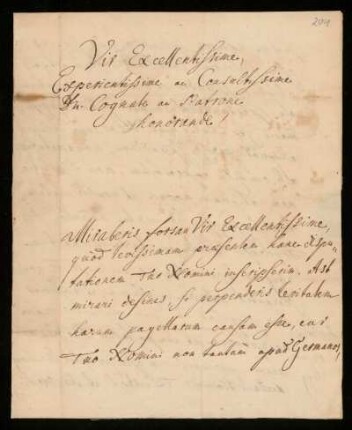 204
Vir Excellentissime,
Experientissime ac Consultissime
Dn. Cognate ac Patrone
honorande!
Miraberis forsan Vir Excellentissime,
quod levissimam praesentem hanc dispu-
tationem Tuo Nomini inscripserim. Ast
mirari desines, si perpenderis levitatem
harum pagellarum causam esse, cur
Tuo Nomini non tantum apud Germanos,